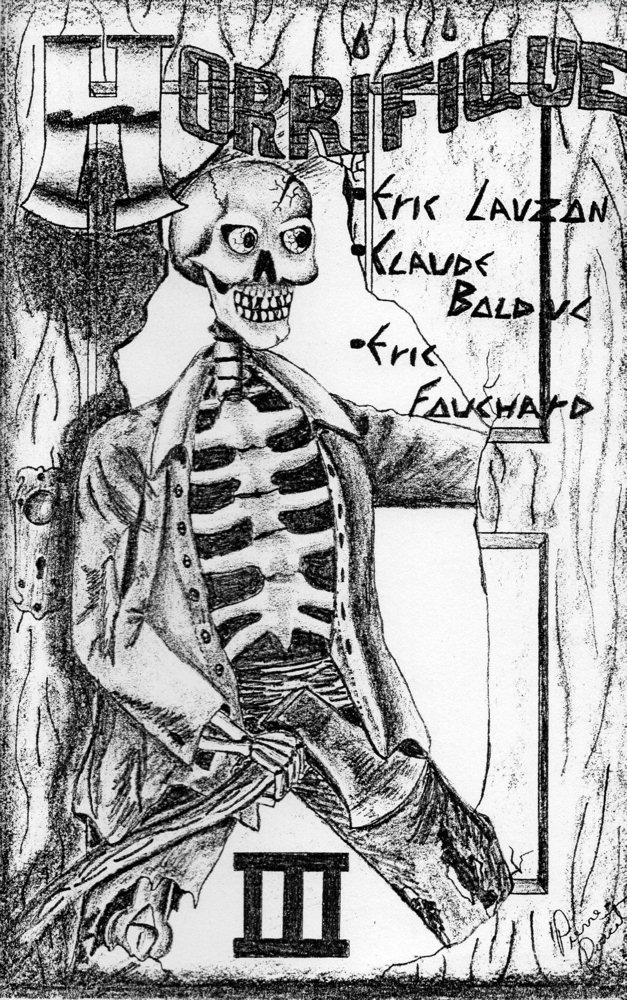 HORRIFIQUE
• Eric Lauzon
• Claude
Bolduc
• Eric
Fouchard
III